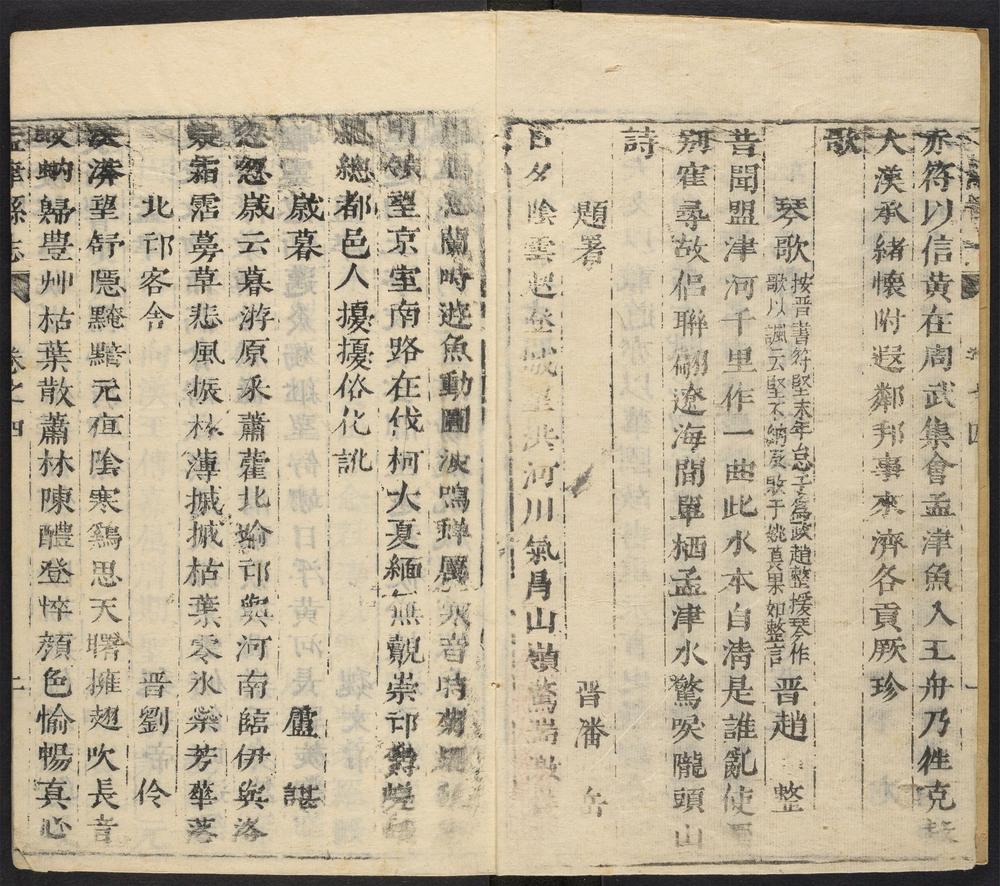 亦符以信黄在周武集會孟津魚入王舟乃牲克
大漢承緒懷附遐鄰邦事來濟各貢厥珍
歌
琴歌 按晋書符堅末年怠于爲政趙整援琴作歌以諷云堅不納及敗于姚萇果如整言 晋趙整
昔聞盟津河千里作一曲此水本自清是誰亂使
別寉尋故侶聯翩遼海間單栖孟津水驚唳隴頭山
詩
題署 晋潘岳
日夕陰雲起登城望洪河川氣冐山嶺驚湍激
時遊魚動圓波鳴蟬厲寒音時菊
領望京室南路在伐柯大夏緬無覿崇邙鬱
總總都邑人擾擾俗化訛
歲暮 盧諶
忽忽歲云暮游原采蕭藿北踰邙與河南臨伊與洛
霜霑蔓草悲風振林薄摵摵枯葉零氷榮芳華落
北邙客舍 晋劉伶
泱漭望舒隱黮黤元夜陰寒鷄思天曙擁翅吹長音
蚊蚋歸豊艸枯葉散蕭林陳醴登悴顔色愉暢真心
孟津縣志 卷之四 二